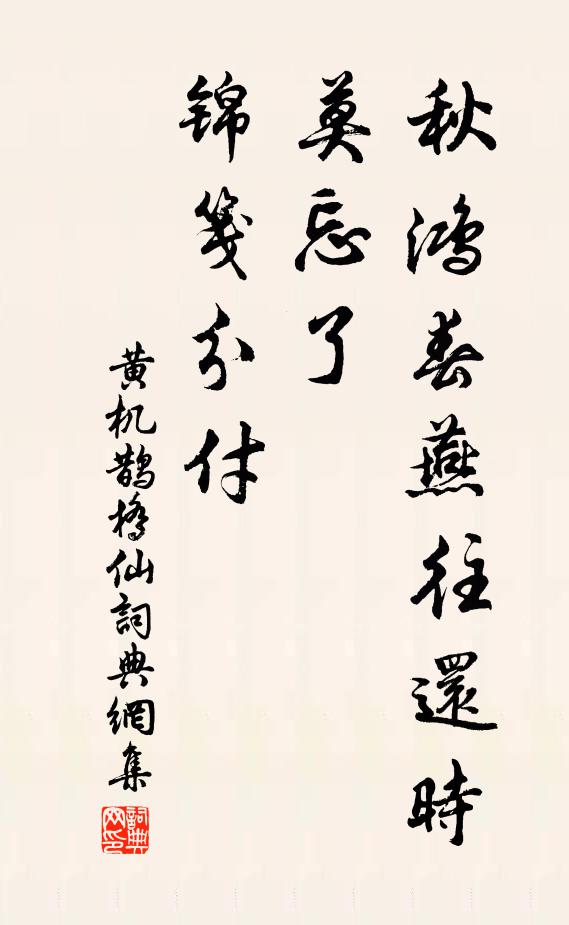 秋鴻春燕往還時
莫忘了
锦箋分付
黄机鹊橋仙詞典網集
詞典网印